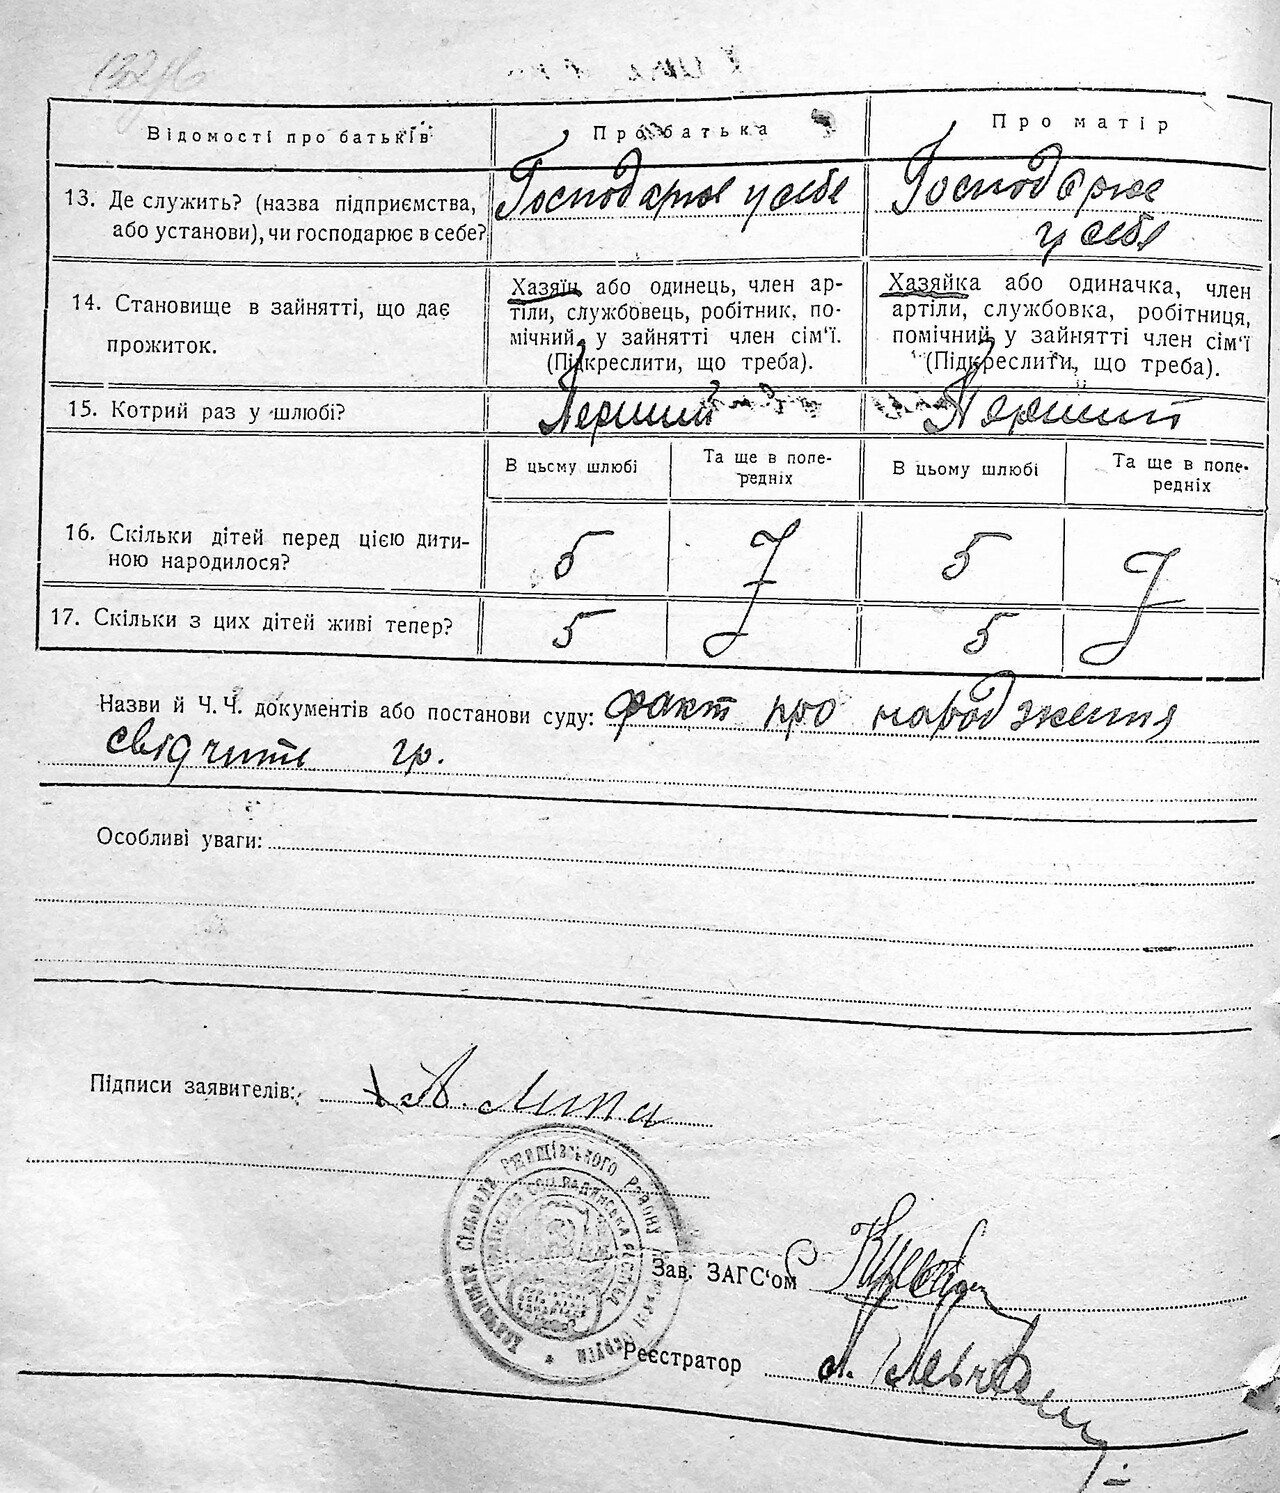 Відомості про батьків
Про батька
Про матір
13. Де служить? (назва підприємства,
або установи), чи господарює в себе?
Господарює у себе
Господарює
у себе
14. Становище в зайнятті, що дає
прожиток.
Хазяїн або одинець, член ар-
тілі, службовець, робітник, по-
мічний у зайнятті член сім'ї.
(Підкреслити, що треба).
Хазяйка або одиначка, член
артіли, службовка, робітниця,
помічний у зайнятті член сім'ї
(Підкреслити, що треба).
15. Котрий раз у шлюбі?
Перший
Перший
В цьому шлюбі
Та ще в попе-
редніх
В цьому шлюбі
Та ще в попе-
редніх
16. Скільки дітей перед цією дити-
ною народилося?
5
5
17. Скільки з цих дітей живі тепер?
5
5
Назви й Ч. Ч. документів або постанови суду: факт про народження
свідчить гр.
Особливі уваги:
Підписи заявителів:
Ржищівського Району
Зав. ЗАГС'ом
Реєстратор